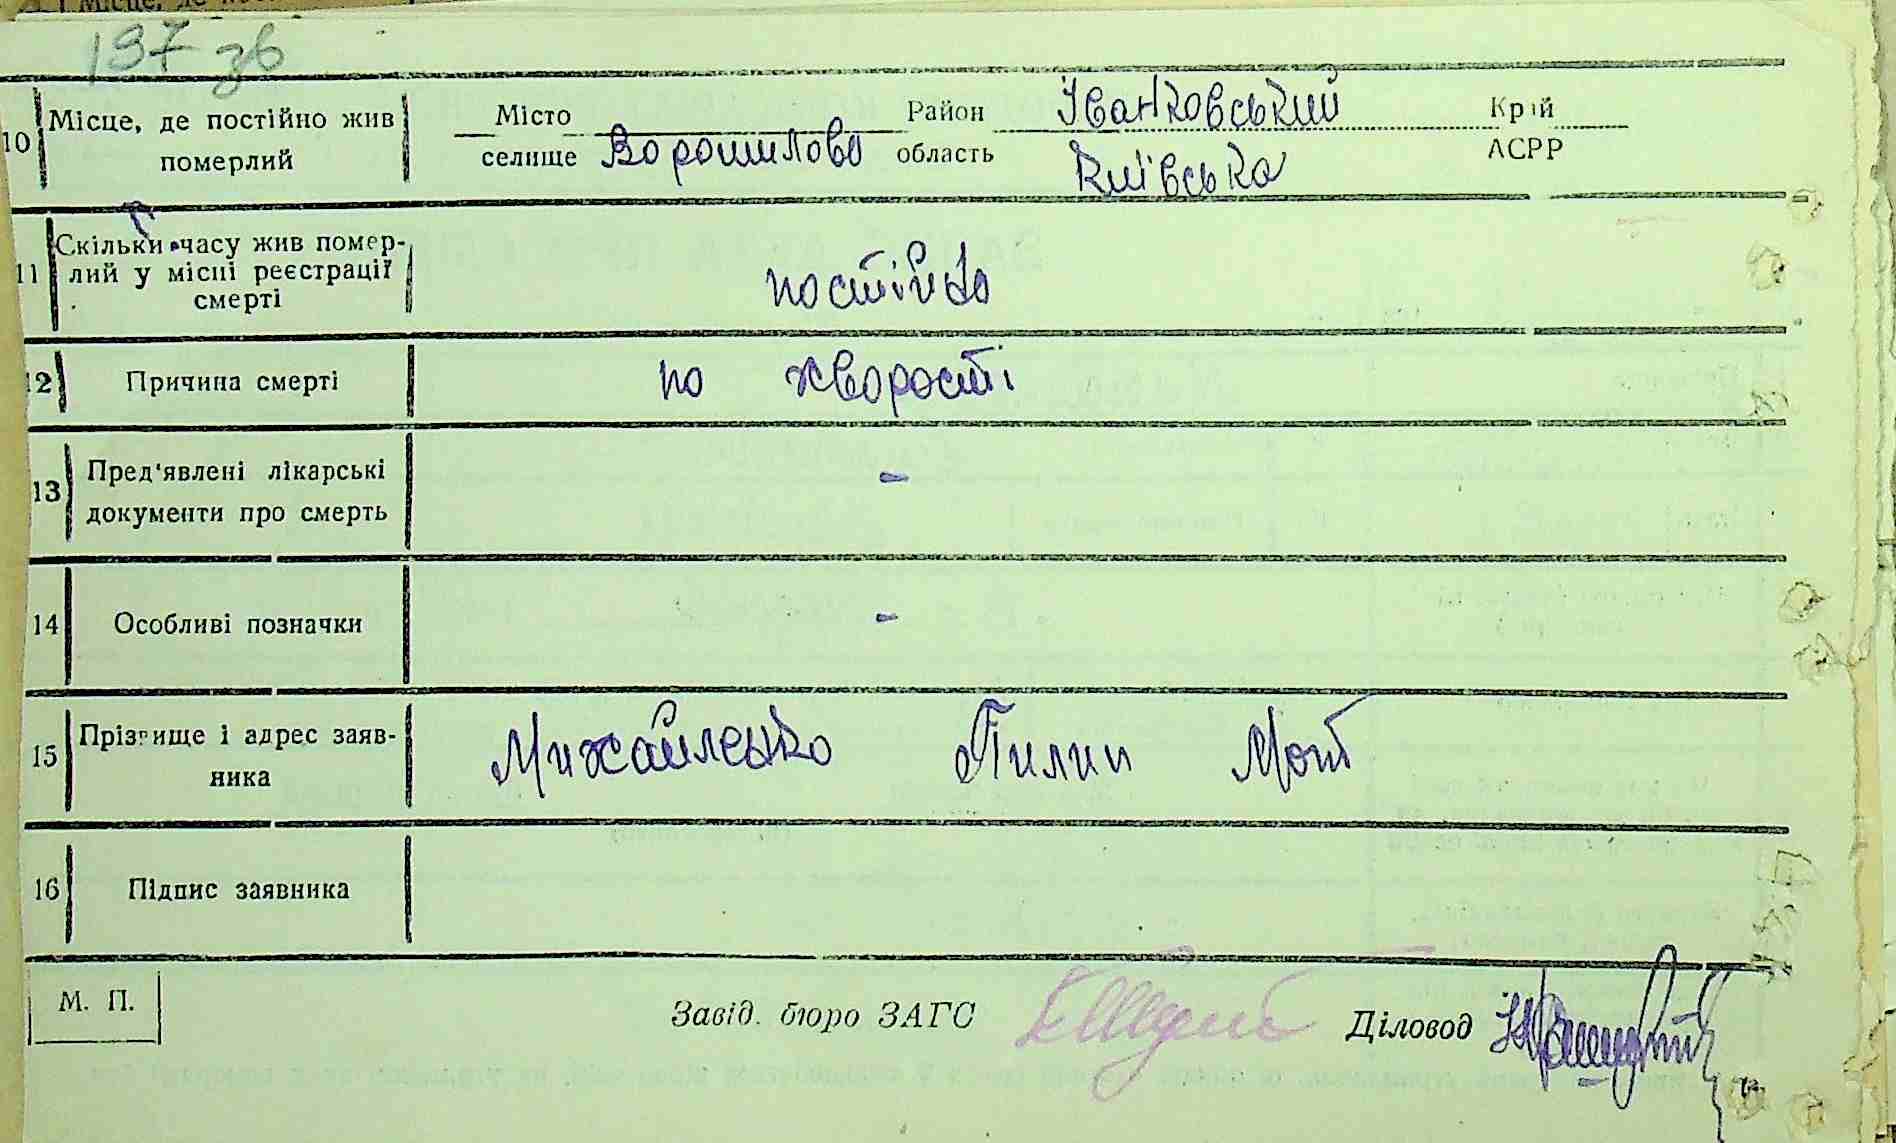 197 зв
10 Місце, де постійно жив померлий
Місто селище Ворошилово Район Іванковський область Київська Край АСРР
11 Скільки часу жив померлий у місці реєстрації смерті
постійно
12 Причина смерті по хворості
13 Пред'явлені лікарські документи про смерть -
14 Особливі позначки -
15 Прізвище і адрес заявника
Михайленко Пилип Мот
16 Підпис заявника
М. П. Завід. бюро ЗАГС Діловод